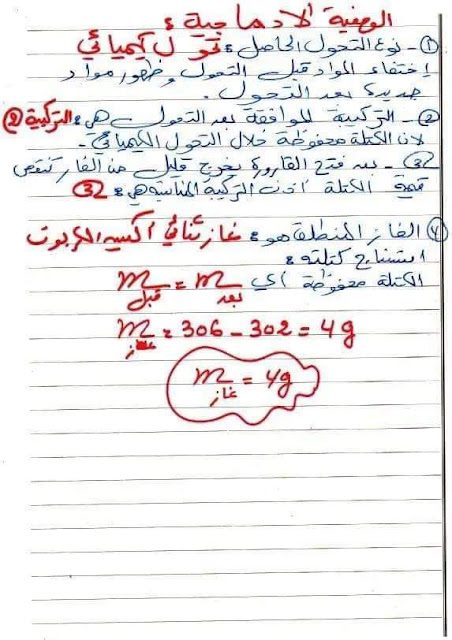 الوضعية الادماجية :
① - نوع التحول الحاصل : تحول كيميائي
إختفاء المواد قبل التحول وظهور مواد
جديدة بعد التحول .
② - التركيبة الموافقة بعد التحول هي : التركيبة ②
لان الكتلة محفوظة خلال التحول الكيميائي .
③ - بعد فتح القارورة يخرج قليل من الغاز تنقص
قيمة الكتلة اذن التركيبة المناسبة هي : ③
④ الغاز المنطلق هو : غاز ثنائي أكسيد الكربون
استنتاج كتلته :
الكتلة محفوظة أي m بعد = m قبل
m غاز = 306 - 302 = 4g
m غاز = 4g